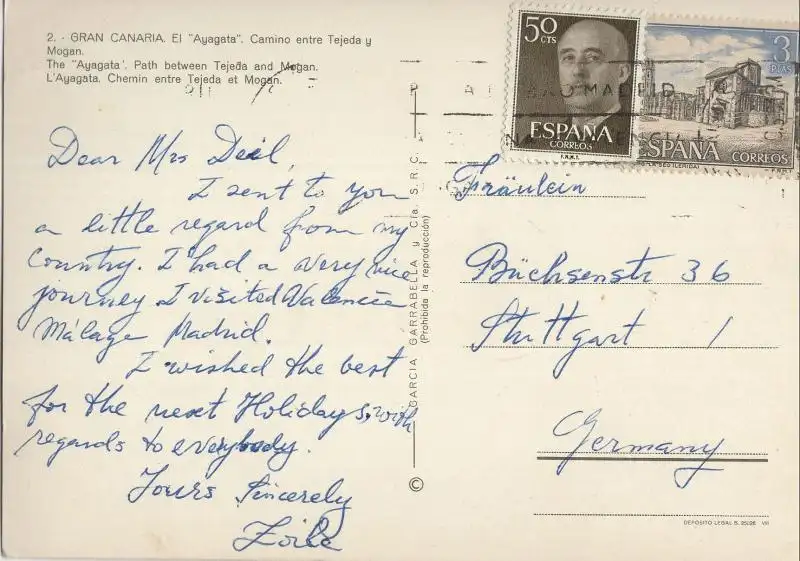 2. - GRAN CANARIA. El "Ayagata". Camino entre Tejeda y
Mogan.
The "Ayagata". Path between Tejeda and Mogan.
L'Ayagata. Chemin entre Tejeda et Mogan.
Dear Mrs
I sent to you
a little regard from my
Country. I had a very nice
journey I visited Valencia
Málaga Madrid.
I wished the best
for the next Holidays, with
regards to everybody.
Yours Sincerely
GARCIA GARRABELLA y Cía. S.R.C.
(Prohibida la reproducción)
©
50
CTS
ESPAÑA
CORREOS
F.N.M.T.
3
PTAS
ESPAÑA CORREOS
SEO (LERIDA)
F.N.M.T.
MADRID
Fräulein
Büchsenstr 36
Stuttgart 1
Germany
DEPOSITO LEGAL B.
VIII